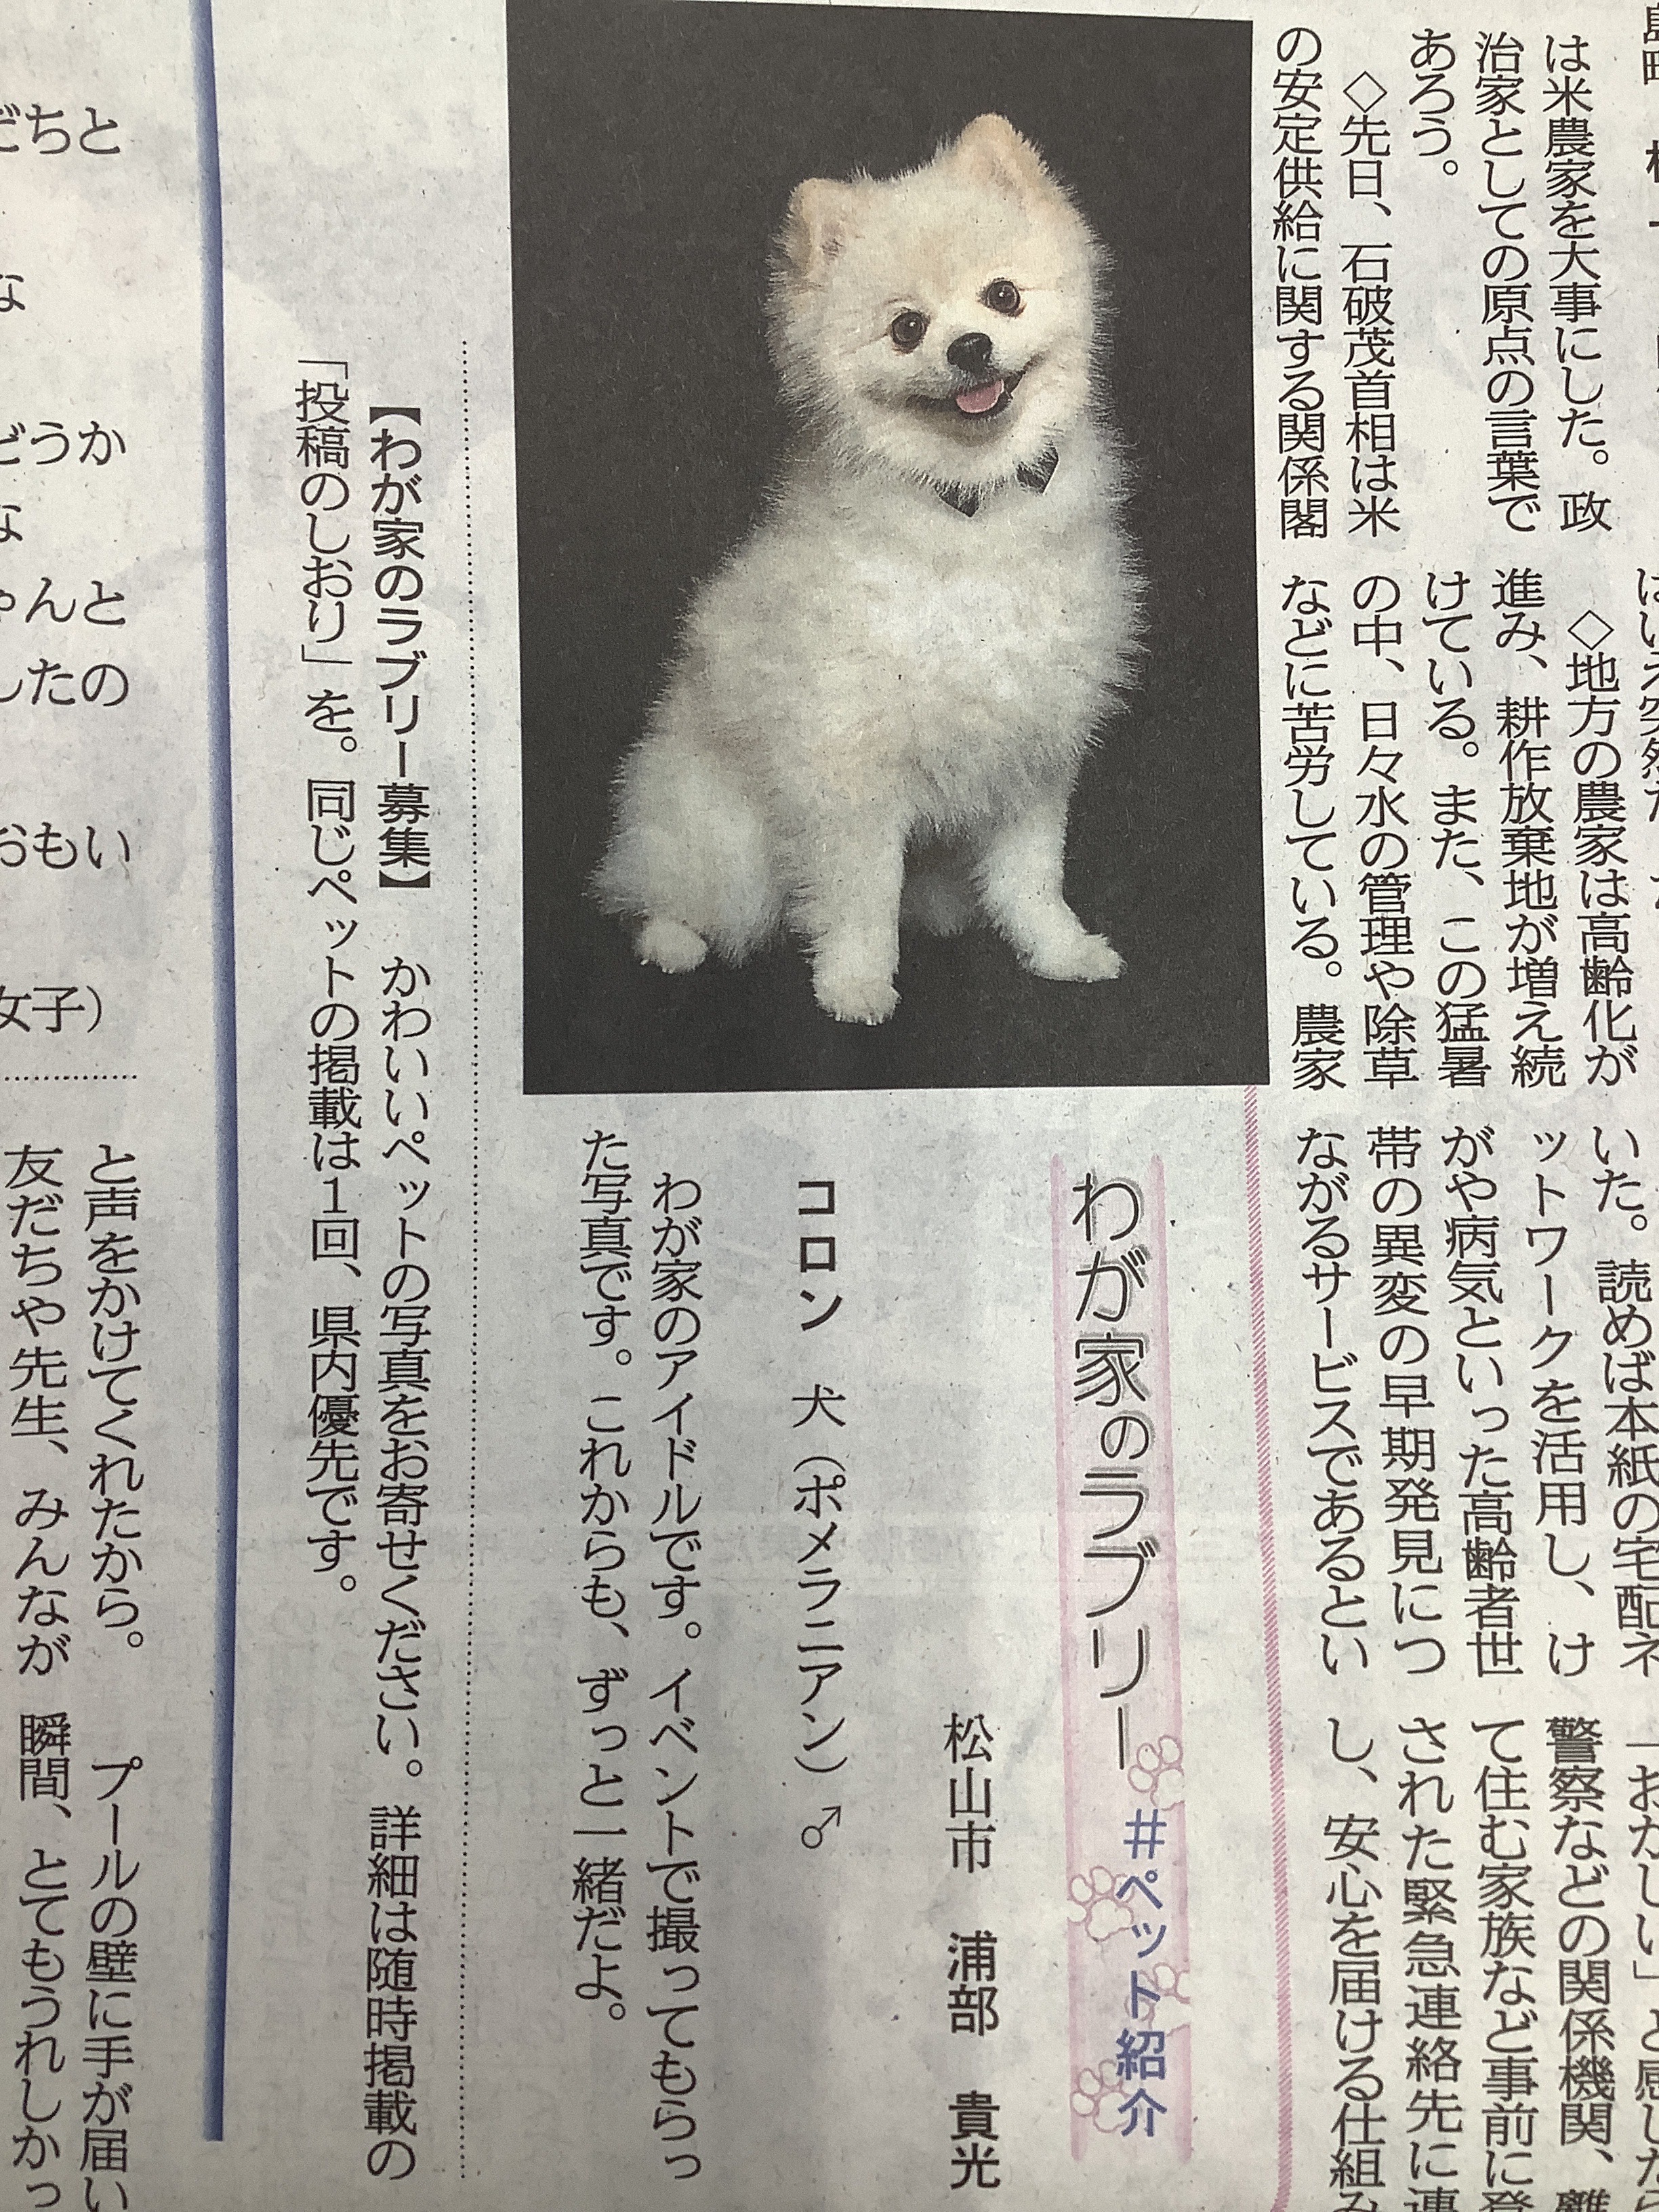 は米農家を大事にした。政
治家としての原点の言葉で
あろう。
◇先日、石破茂首相は米
の安定供給に関する関係閣
◇地方の農家は高齢化が
進み、耕作放棄地が増え続
けている。また、この猛暑
の中、日々水の管理や除草
などに苦労している。農家
いた。読めば本紙の宅配ネ
ットワークを活用し、け
がや病気といった高齢者世
帯の異変の早期発見につ
ながるサービスであるとい
「おかしい」と感じたら
警察などの関係機関、離
て住む家族など事前に登
された緊急連絡先に連
し、安心を届ける仕組み
わが家のラブリー #ペット紹介
松山市 浦部 貴光
コロン 犬(ポメラニアン)♂
わが家のアイドルです。イベントで撮ってもらっ
た写真です。これからも、ずっと一緒だよ。
【わが家のラブリー募集】 かわいいペットの写真をお寄せください。詳細は随時掲載の
「投稿のしおり」を。同じペットの掲載は1回、県内優先です。
だちと
な
どうか
な
ゃんと
したの
おもい
女子)
と声をかけてくれたから。
友だちや先生、みんなが
プールの壁に手が届い
瞬間、とてもうれしかっ